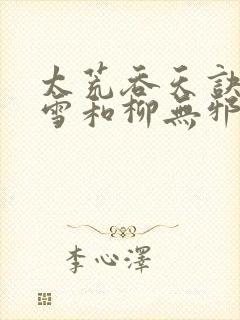 太荒吞天訣
雪和柳無邪
李心澤